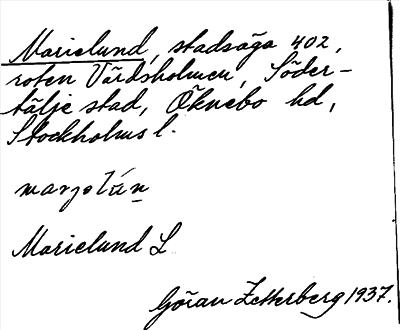 Marielund, stadsäga 402,
roten Värdsholmen, Söder-
tälje stad, Öknebo hd,
Stockholms l.
marjelún
Marielund L
Göran Zetterberg 1937.